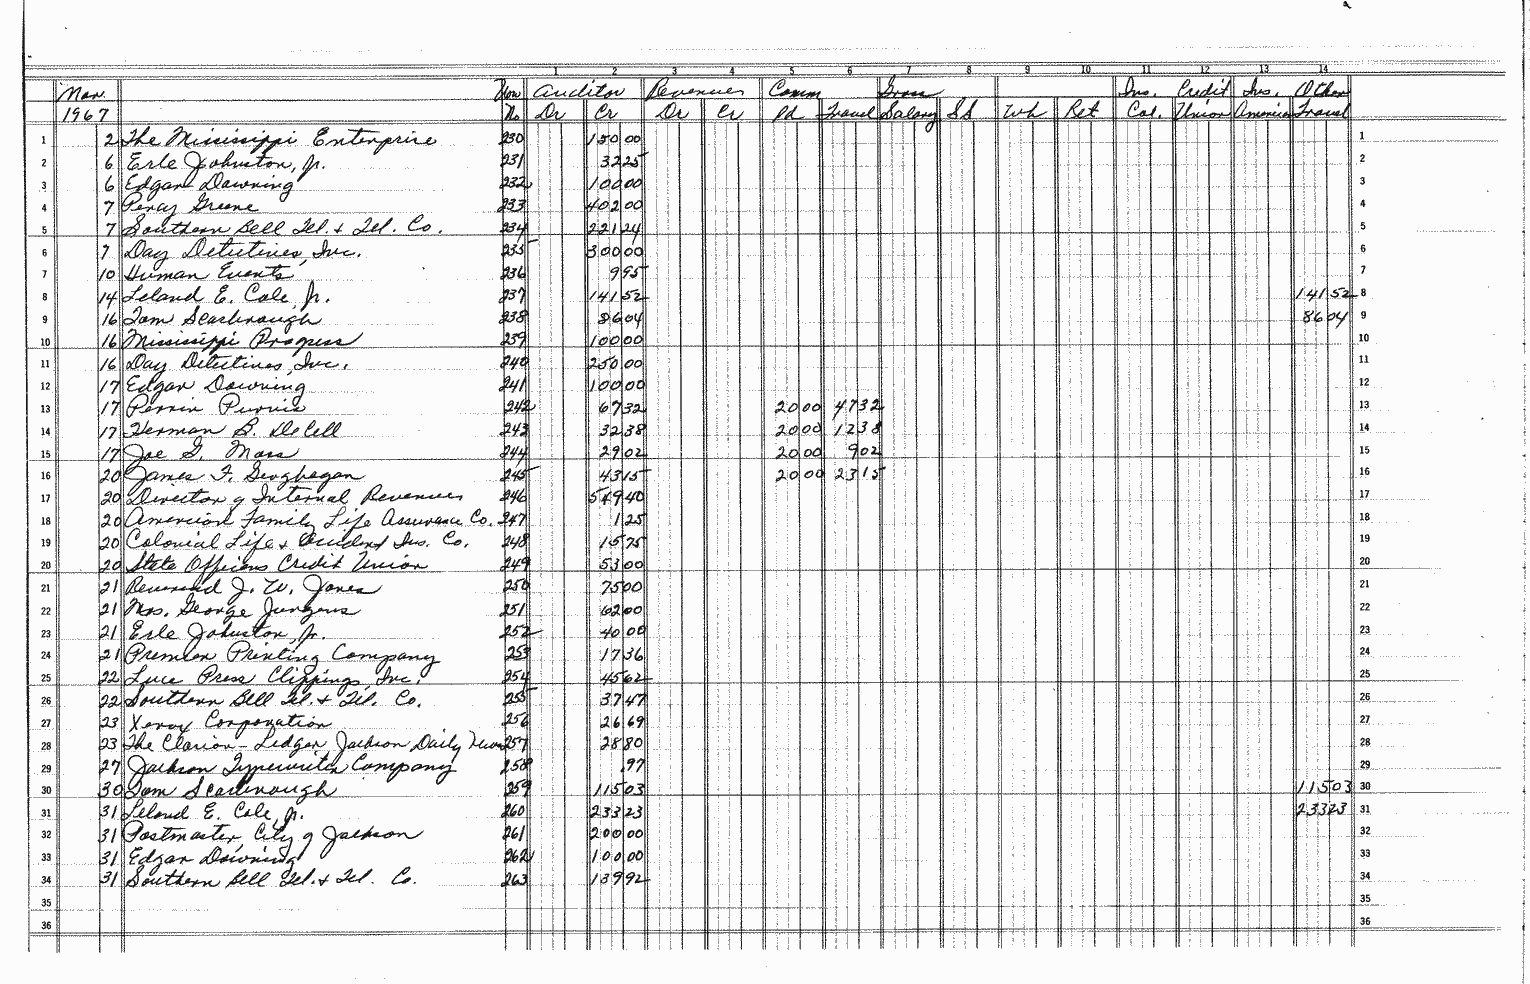 1 2 3 4 5 6 7 8 9 10 11 12 13 14
Mar. Auditor Revenues Comm Gross Ins. Credit Ins. Other
1967 No Dr Cr Dr Cr Pd Travel Salary SS Wh Ret Col. Union American Travel
1 2 The Mississippi Enterprise 230 150 00 1
2 6 Erle Johnston, Jr. 231 32 25 2
3 6 Edgar Downing 232 100 00 3
4 7 Percy Greene 233 402 00 4
5 7 Southern Bell Tel. & Tel. Co. 234 221 24 5
6 7 Day Detectives, Inc. 235 300 00 6
7 10 Human Events 236 9 95 7
8 14 Leland E. Cole, Jr. 237 141 52 141 52 8
9 16 Tom Scarbrough 238 86 04 86 04 9
10 16 Mississippi Progress 239 100 00 10
11 16 Day Detectives, Inc. 240 250 00 11
12 17 Edgar Downing 241 100 00 12
13 17 Perrin Purvis 242 67 32 20 00 47 32 13
14 17 Herman B. DeCell 243 32 38 20 00 12 38 14
15 17 Joe G. Moss 244 29 02 20 00 9 02 15
16 20 James F. Geoghegan 245 43 15 20 00 23 15 16
17 20 Director of Internal Revenues 246 549 40 17
18 20 American Family Life Assurance Co. 247 1 25 18
19 20 Colonial Life & Accident Ins. Co. 248 15 75 19
20 20 State Officers Credit Union 249 53 00 20
21 21 Reverend J. W. Jones 250 75 00 21
22 21 Mrs. George Jurgens 251 62 00 22
23 21 Erle Johnston, Jr. 252 40 00 23
24 21 Premier Printing Company 253 17 36 24
25 22 Luce Press Clippings, Inc. 254 45 62 25
26 22 Southern Bell Tel. & Tel. Co. 255 37 47 26
27 23 Xerox Corporation 256 26 69 27
28 23 The Clarion-Ledger, Jackson Daily News 257 28 80 28
29 27 Jackson Typewriter Company 258 .97 29
30 30 Tom Scarbrough 259 115 03 115 03 30
31 31 Leland E. Cole, Jr. 260 233 23 233 23 31
32 31 Postmaster, City of Jackson 261 200 00 32
33 31 Edgar Downing 262 100 00 33
34 31 Southern Bell Tel. & Tel. Co. 263 139 92 34
35 35
36 36